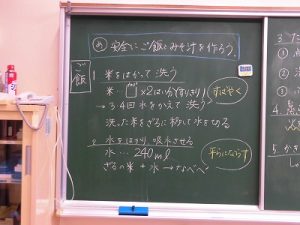 め 安全に、ご飯とみそ汁を作ろう。
ご飯
1 米をはかって洗う
米… ×2はい分(すりきり)
すばやく
→3、4回 水をかえて洗う
洗った米をざるに移して水を切る
2 水をはかり 吸水させる
水… 240ml
平らにならす
ざるの米 + 水 → なべへ